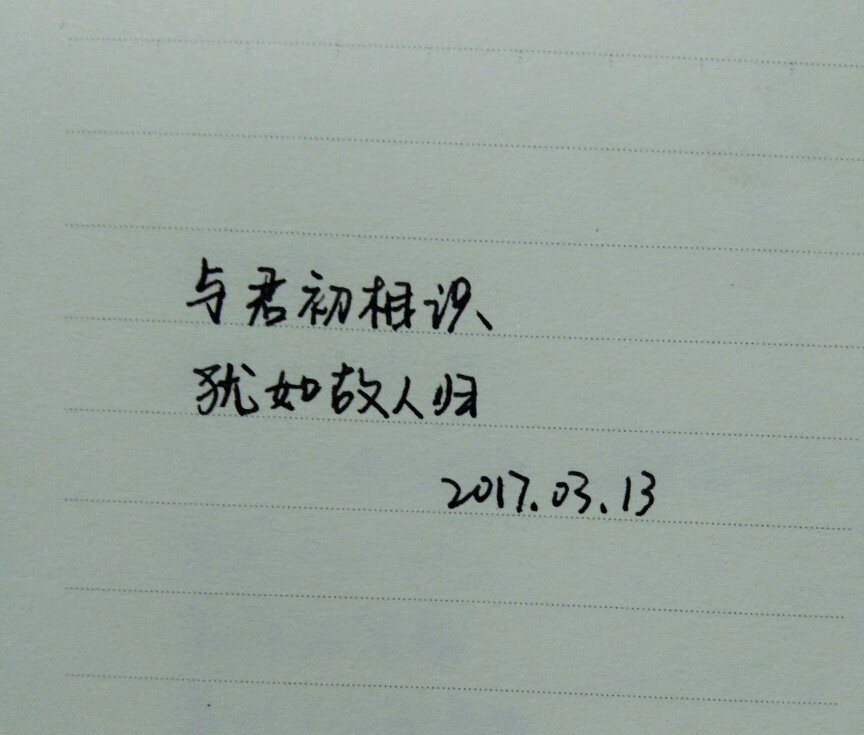 与君初相识、
犹如故人归
2017.03.13